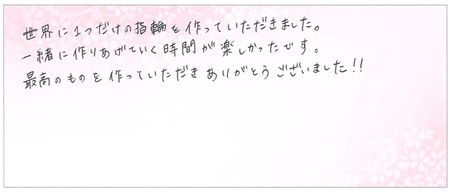 世界に1つだけの指輪を作っていただきました。
一緒に作りあげていく時間が楽しかったです。
最高のものを作っていただきありがとうございました!!